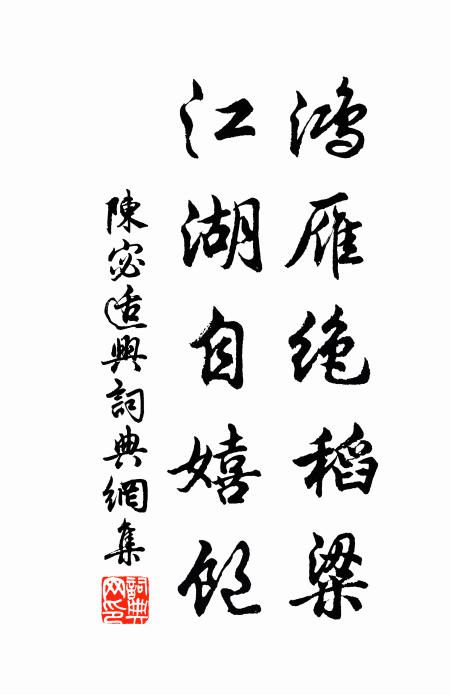 鴻雁絕稻粱
江湖自嬉飽
陳宓適興詞典網集
詞典
网印